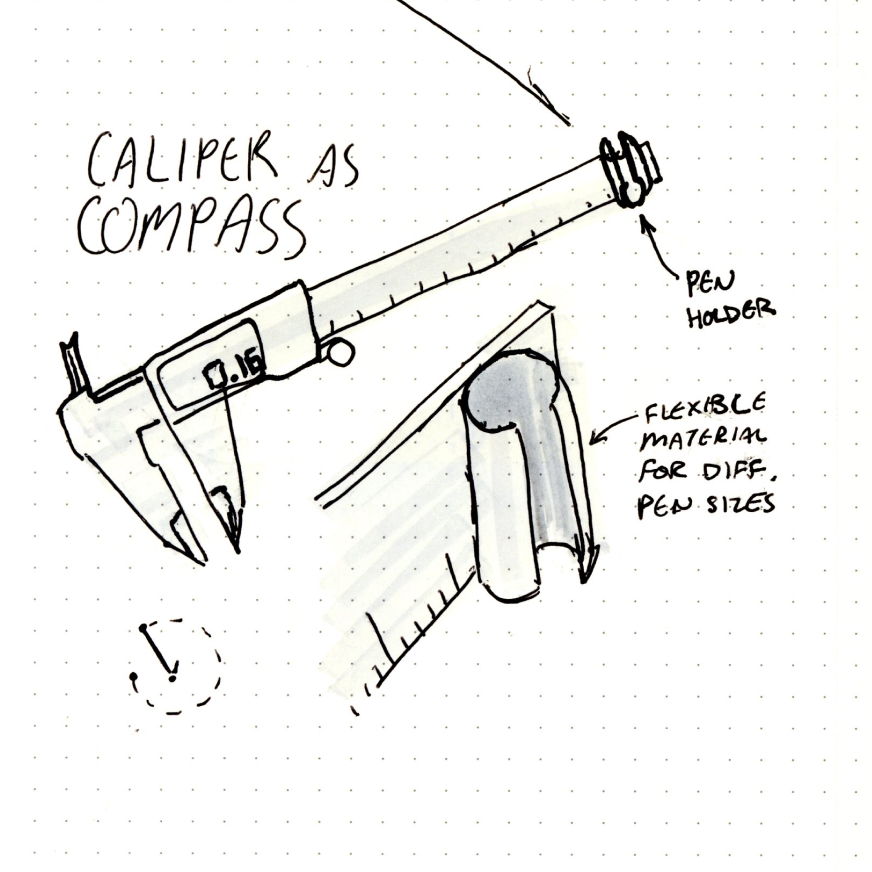 CALIPER AS
COMPASS
0.16
PEN
HOLDER
FLEXIBLE
MATERIAL
FOR DIFF.
PEN SIZES